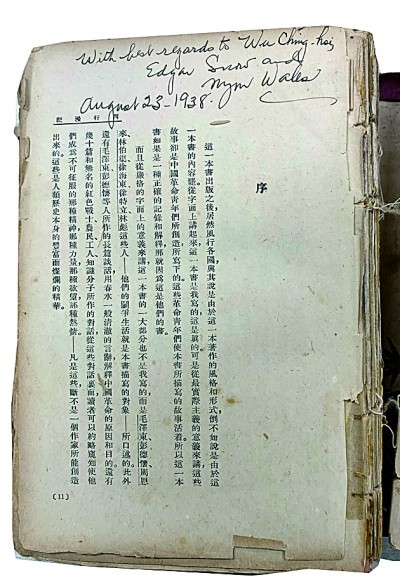 With best regards to Wu Ching-hsi
Edgar Snow and
Nym Wales
August 23-1938.
西行漫記
序
這一本書出版之後,居然風行各國,與其說是由於這一本著作的風格和形式,倒不如說是由於這
一本書的內容罷。從字面上講起來,這一本書是我寫的,這是真的。可是從最實際主義的意義來講,這些
故事卻是中國革命青年們所創造,所寫下的。這些革命青年們使本書所描寫的故事活着。所以這一本
書如果是一種正確的記錄和解釋,那就因爲這是他們的書。
而且從嚴格的字面上的意義來講,這一本書的一大部分也不是我寫的,而是毛澤東、彭德懷、周恩
來、林伯渠、徐海東、徐特立、林彪這些人——他們的鬥爭生活就是本書描寫的對象——所口述的。此外
還有毛澤東、彭德懷等人所作的長篇談話,用春水一般清澈的言辭,解釋中國革命的原因和目的。還有
幾十篇和無名的紅色戰士、農民、工人、知識分子所作的對話,從這些對話裏面,讀者可以約略窺知使他
們成爲不可征服的那種精神,那種力量,那種慾望,那種熱情。——凡是這些,斷不是一個作家所能創造
出來的。這些是人類歷史本身的豐富而燦爛的精華。
(11)